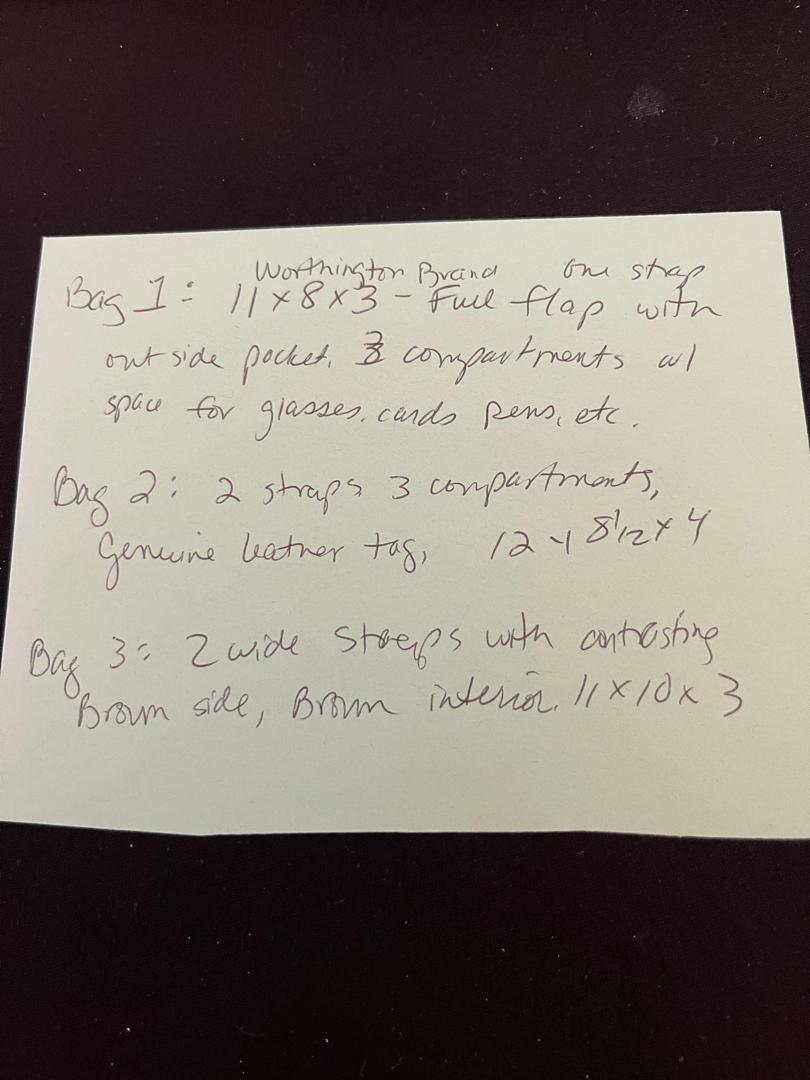 Worthington Brand one strap
Bag 1: 11 x 8 x 3 - Full flap with
outside pocket. 3 compartments w/
space for glasses, cards pens, etc.
Bag 2: 2 straps 3 compartments,
Genuine leather tag, 12 x 8 1/2 x 4
Bag 3: 2 wide straps with contrasting
Brown side, Brown interior. 11 x 10 x 3